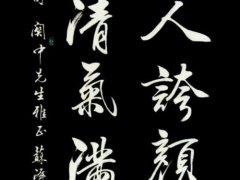 人誇顏
清氣滿
閣中先生雅正 蘇